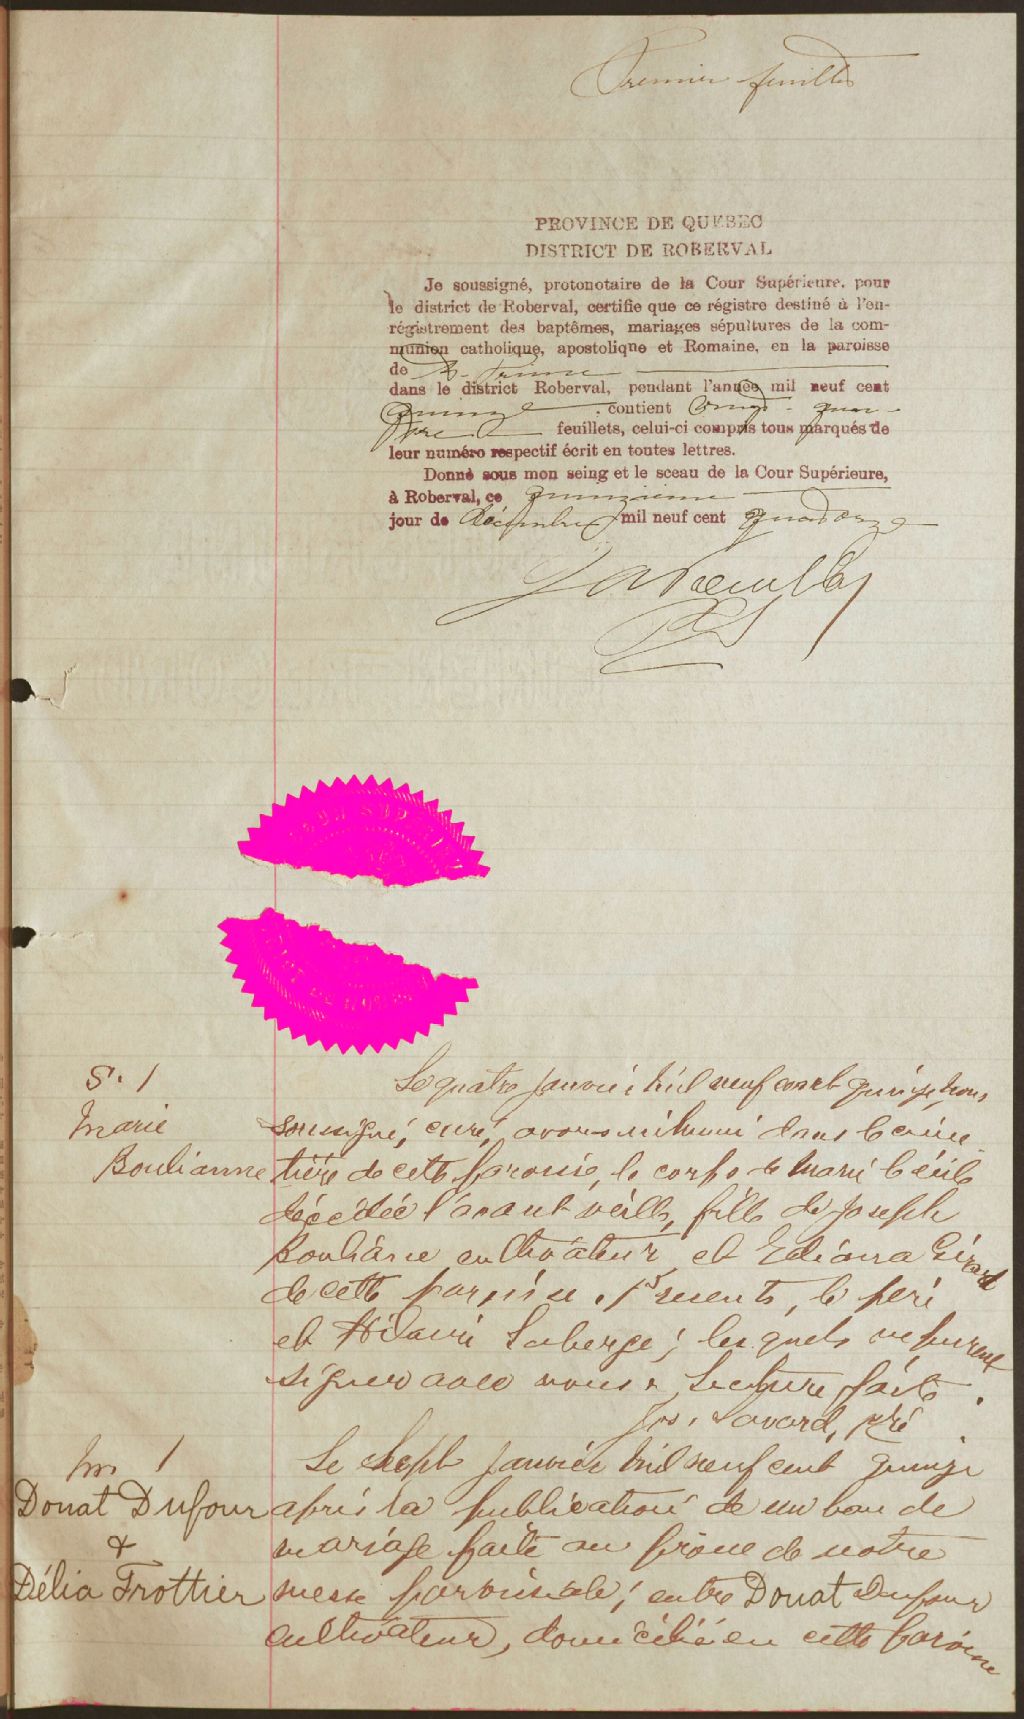 Premier feuillet
PROVINCE DE QUEBEC
DISTRICT DE ROBERVAL
Je soussigné, protonotaire de la Cour Supérieure, pour
le district de Roberval, certifie que ce régistre destiné à l'en-
régistrement des baptêmes, mariages sépultures de la com-
munion catholique, apostolique et Romaine, en la paroisse
de St-Prime
dans le district Roberval, pendant l'année mil neuf cent
quinze, contient
feuillets, celui-ci compris tous marqués de
leur numéro respectif écrit en toutes lettres.
Donné sous mon seing et le sceau de la Cour Supérieure,
à Roberval, ce quinzième
jour de décembre mil neuf cent quatorze
P C S
S. 1
Marie
Boulianne
Le quatre janvier mil neuf cent quinze, nous
soussigné, curé, avons inhumé dans le cime
tière de cette paroisse, le corps de Marie Cécile
décédée l'avant veille, fille de Joseph
Bouliane cultivateur, et Ediana Girard
de cette paroisse. Présents, le père
et Hilaire Laberge; lesquels ne surent
signer avec nous. Lecture faite.
Jos. Lavard, ptre
M. 1
Donat Dufour
&
Délia Trottier
Le sept janvier mil neuf cent quinze
après la publication de un ban de
mariage faite au prône de notre
messe paroissiale; entre Donat Dufour
cultivateur, domicilié en cette paroisse